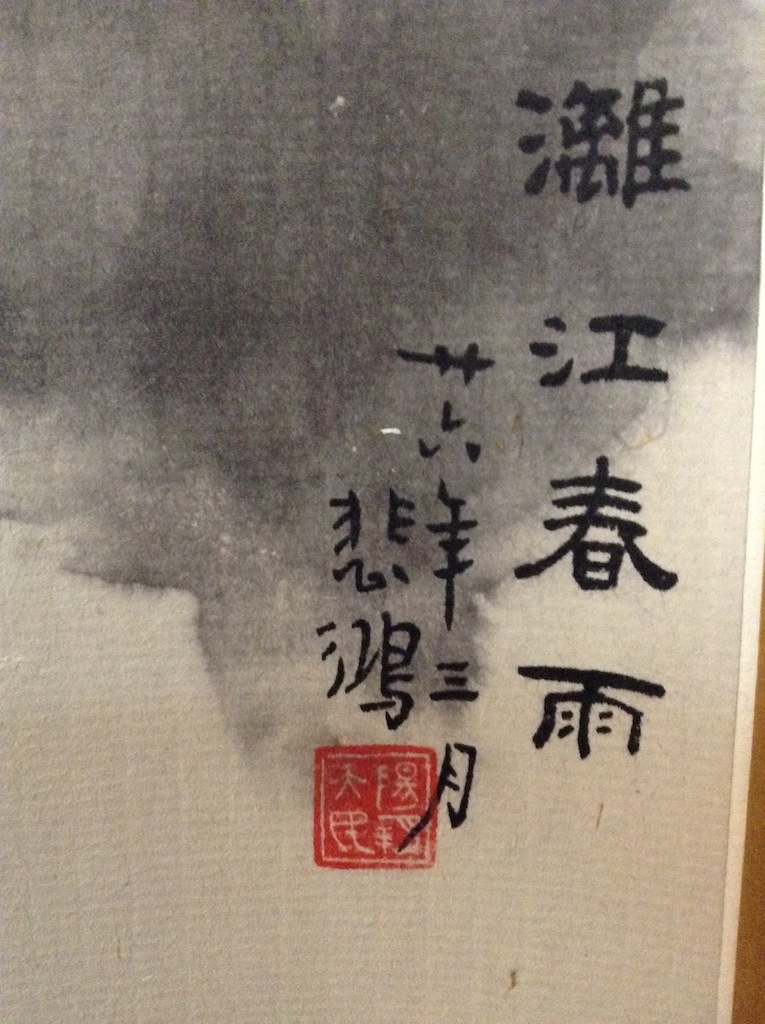 灕江春雨
廿六年三月
悲鴻
陽朔天民